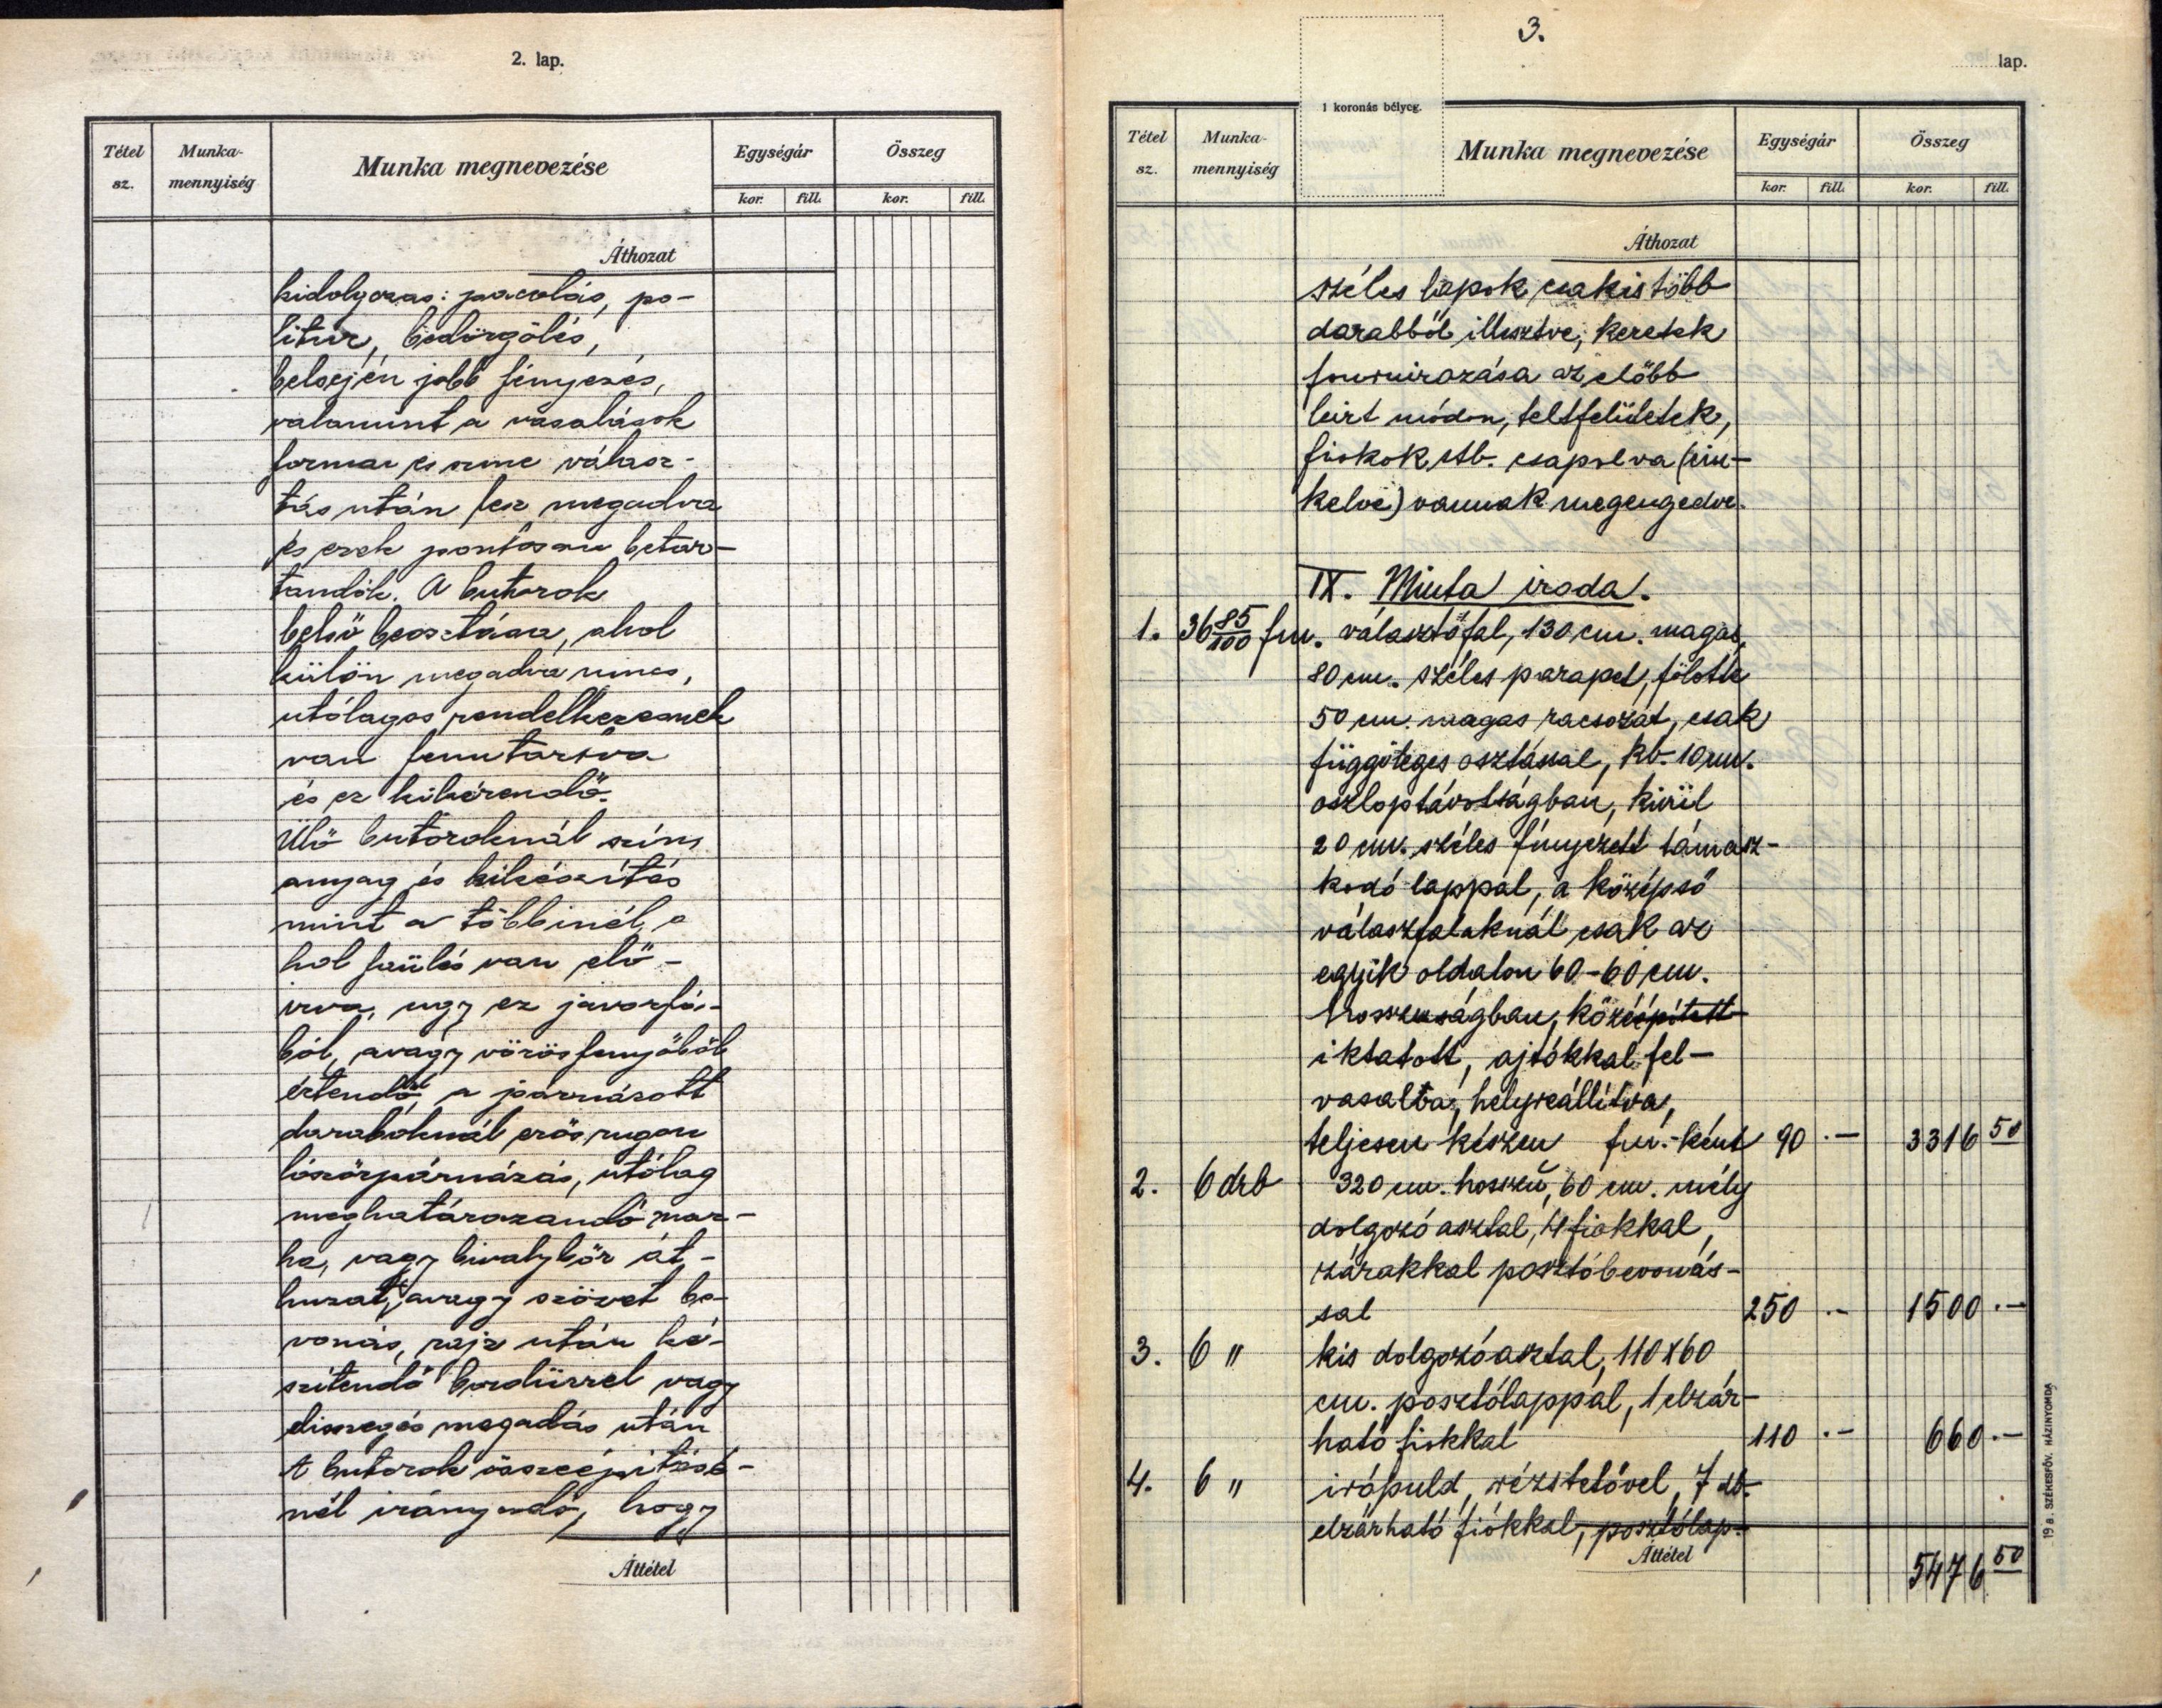 2. lap.
Tétel sz.
Munka-mennyiség
Munka megnevezése
Egységár
Összeg
kor. fill. kor. fill.
Áthozat
kidolgozas: pacolás, po-
litur, bedörgölés,
belsején jobb fényezés,
valamint a vasalások
formai és szine válasz-
tás után lesz megadva
és ezek pontosan betar-
tandók. A butorok
belső beosztása, ahol
külön megadva nincs,
utólagos rendelkezesnek
van fenntartva
és ez kikérendő.
Ülő butoroknál szín,
anyag és kikészítés
mint a többinél, a
hol faülés van elő-
irva, ugy ez javorfá-
ból, avagy vörösfenyőből
értendő, a párnázott
daraboknál erős rugan
lószőrpárnázás, utólag
meghatározandó mar-
ha, vagy bivalybőr át-
huzat, avagy szövet be-
vonás, rajz után ké-
szitendő bordürrel vagy
diszszegés megadás után
A butorok összeépitésé-
nél irányadó, hogy
Áttétel
3.
lap.
1 koronás bélyeg.
Tétel sz.
Munka-mennyiség
Munka megnevezése
Egységár
Összeg
kor. fill. kor. fill.
Áthozat
széles lapok csakis több
darabból illesztve, keretek
fournirozása az előbb
leirt módon, teltfelületek,
fiokok stb. csapolva (cin-
kelve) vannak megengedve.
IX. Minta iroda.
1. 36 85/100 fm. választófal, 130 cm. magas,
80 cm. széles parapet, fölötte
50 cm. magas racsozat, csak
függőleges osztással, kb. 10 cm.
oszloptávolságban, kivül
20 cm. széles fényezett támasz-
kodó lappal, a középső
válaszfalaknál csak az
egyik oldalon 60-60 cm.
hosszuságban, közéépitett
iktatott, ajtókkal fel-
vasalva, helyreállitva,
teljesen készen fm.-ként 90 .— 3316 50
2. 6 drb 320 cm. hosszu, 60 cm. mély
dolgozó asztal, 4 fiokkal,
zárakkal posztóbevonás-
sal 250 .— 1500 .—
3. 6 " kis dolgozóasztal, 110 x 60
cm. posztólappal, 1 elzár-
ható fiokkal 110 .— 660 .—
4. 6 " irópuld, réztetővel, 7 db.
elzárható fiókkal, posztólap-
Áttétel 5476 50
19 a. SZÉKESFŐV. HÁZINYOMDA